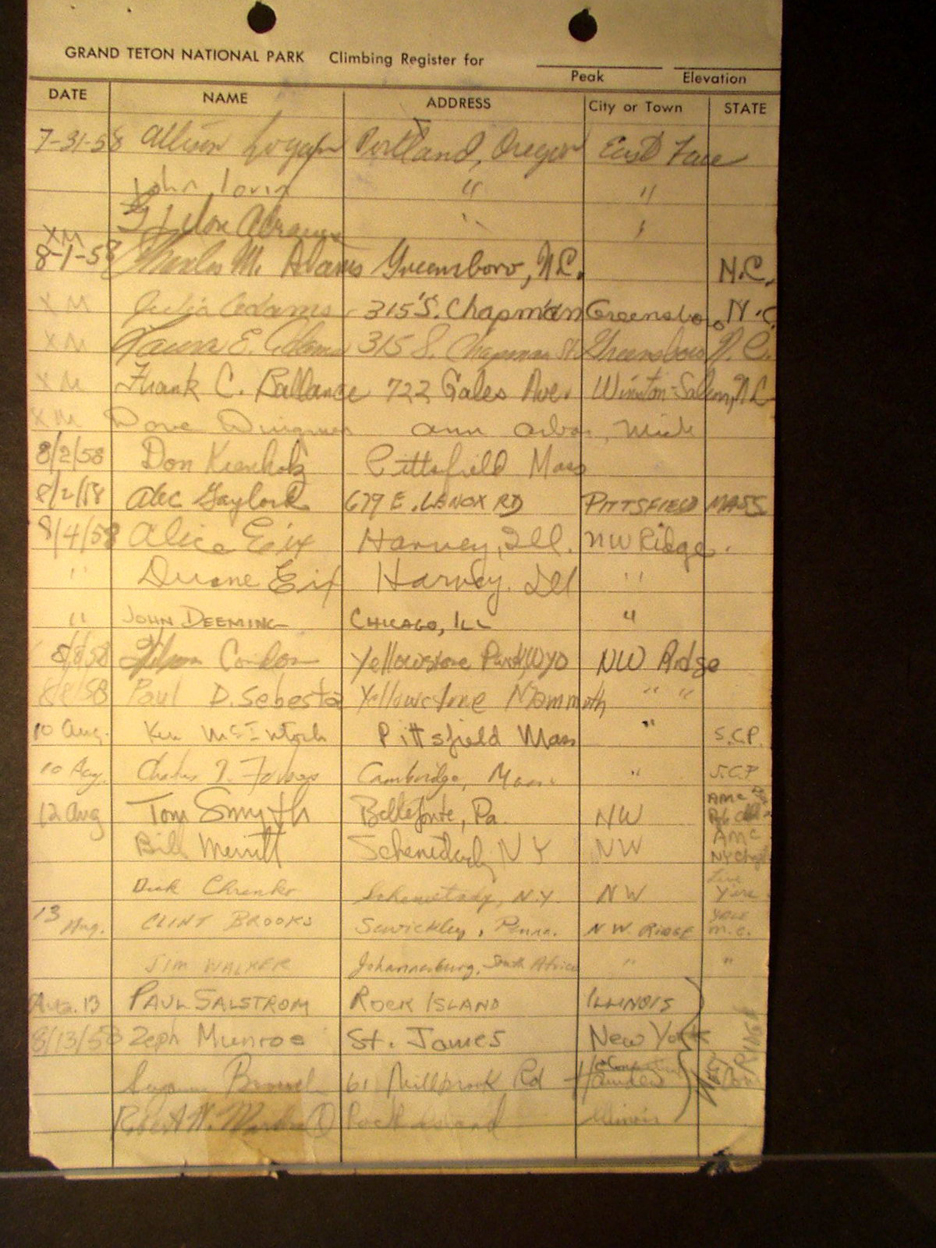 GRAND TETON NATIONAL PARK Climbing Register for
Peak Elevation
DATE NAME ADDRESS City or Town STATE
7-31-58 Allison Logan Portland, Oregon East Face
John " "
XM
8-1-58 Charles M. Adams Greensboro, N.C. N.C.
XM Julia Adams 315 S. Chapman Greensboro, N.C.
XM Laura E. Adams 315 S. Chapman St. Greensboro N.C.
XM Frank C. Ballance 722 Gales Ave. Winston-Salem, N.C.
XM Dave Dingman ann arbor, Mich
8/2/58 Don Kienholz Pittsfield Mass
8/2/58 Alec Gaylord 679 E. LENOX RD PITTSFIELD MASS
8/4/58 Alice Eix Harvey, Ill. NW Ridge.
" Duane Eix Harvey. Ill "
" JOHN DEEMING CHICAGO, ILL "
8/8/58 Condon Yellowstone Park Wyo NW Ridge
8/8/58 Paul D. Sebesta Yellowstone Mammoth " "
10 Aug. Ken McIntosh Pittsfield Mass " S.C.P.
10 Aug. Charles Cambridge, Mass. " S.C.P
12 Aug Tom Smyth Bellefonte, Pa. NW AMC
Bill Merritt Schenectady NY NW AMC
Dick Chrenko Schenectady, N.Y. NW
13 Aug. CLINT BROOKS Sewickley, Penna. NW RIDGE YALE M.C.
JIM WALKER Johannesburg, South Africa " "
Aug. 13 PAUL SALSTROM ROCK ISLAND ILLINOIS
8/13/58 Zeph Munroe St. James New York RIDGE
61 Millbrook Rd Hamden Conn
Robert W. Rock Island Illinois